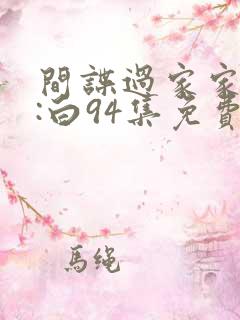 間諜過家家
:白94集免費
馬繩